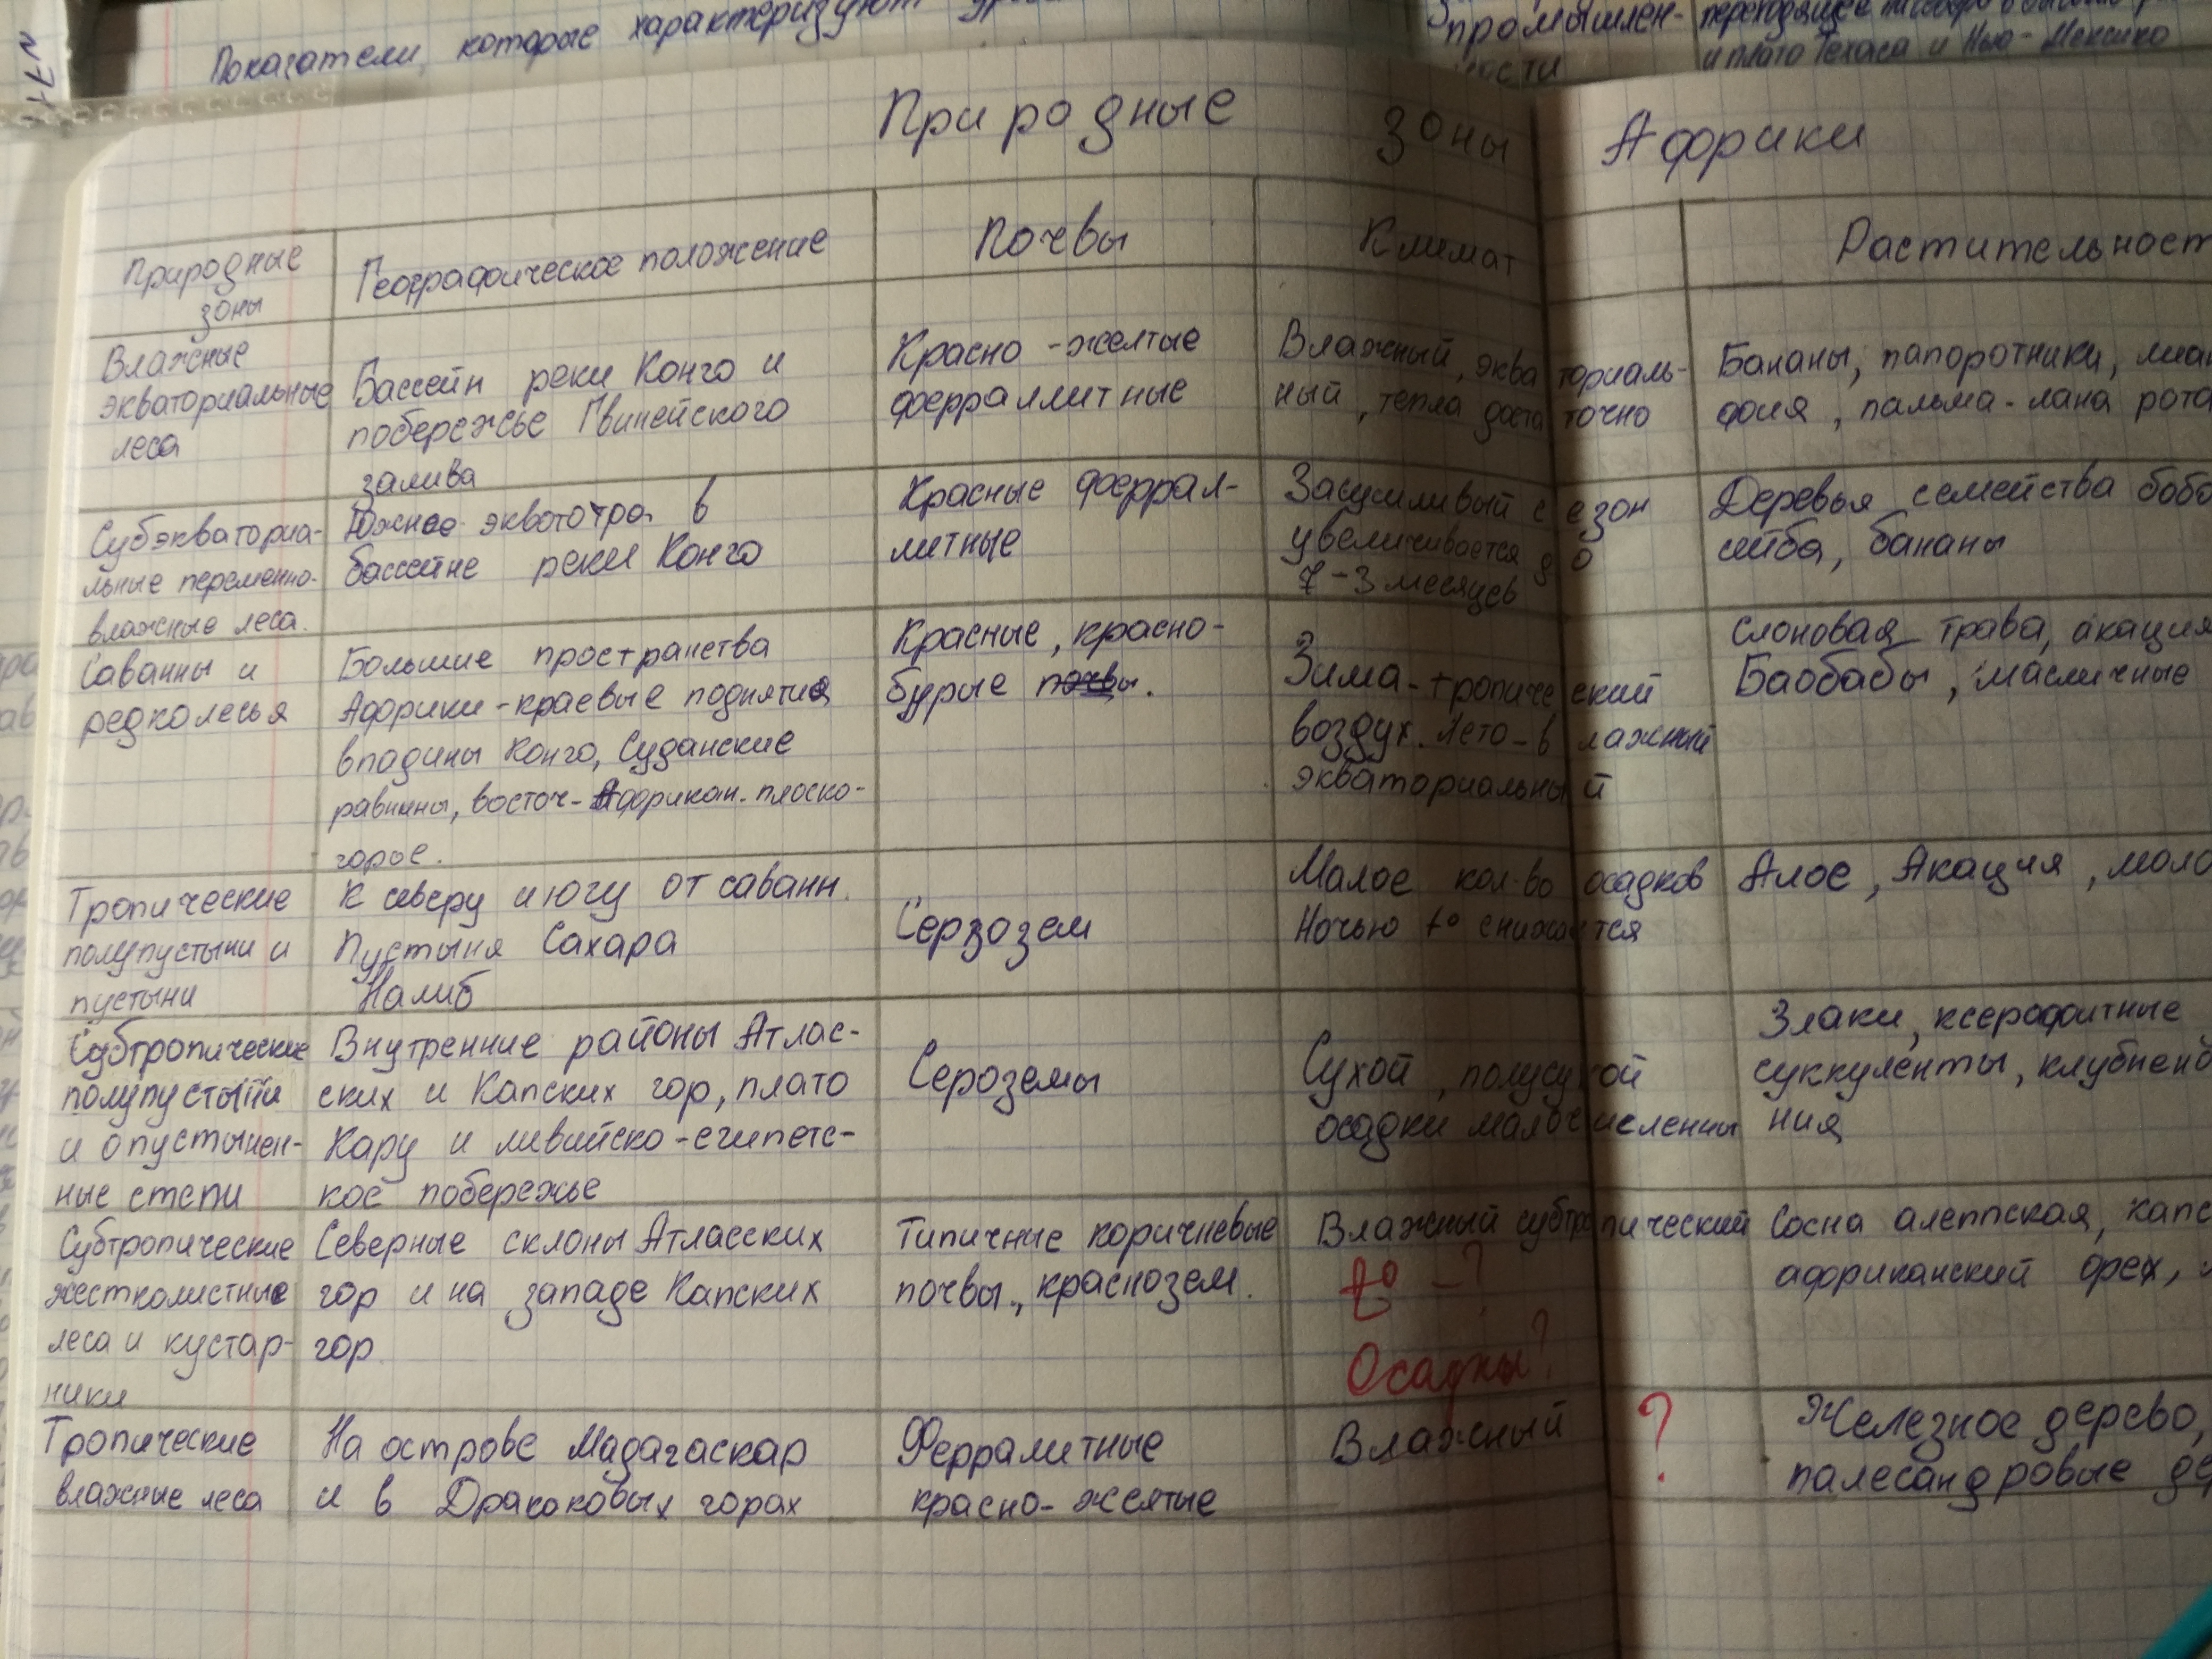 Показатели, которые характеризуют
промышлен-
ности
и плато Техаса и Нью-Мексико
Природные зоны Африки
Природные
зоны
Географическое положение
Почвы
Климат
Растительност
Влажные
экваториальные
леса
Бассейн реки Конго и
побережье Гвинейского
залива
Красно-желтые
ферраллитные
Влажный, экваториаль-
ный, тепла достаточно
Бананы, папоротники, лиан
фия, пальма-лана рота
Субэкваториа-
льные переменно-
влажные леса.
Южнее экватотра в
бассейне реки Конго
Красные феррал-
литные
Засушливый сезон
увеличивается до
7-3 месяцев
Деревья семейства бобо
сейба, бананы
Саванны и
редколесья
Большие пространства
Африки-краевые поднятие
впадины Конго, Суданские
равнины, восточ-Африкан. плоско-
горье.
Красные, красно-
бурые почвы.
Зима-тропический
воздух. Лето-влажный
экваториальный
Слоновая трава, акация
Баобабы, масличные
Тропические
полупустыни и
пустыни
К северу и югу от саванн.
Пустыня Сахара
Намиб
Серзозем
Малое кол-во осадков
Ночью t° снижается
Алое, Акация, моло
Субтропические
полупустыни
и опустынен-
ные степи
Внутренние районы Атлас-
ских и Капских гор, плато
Кару и ливийско-египетс-
кое побережье
Сероземы
Сухой, полусухой
осадки малочисленны
Злаки, ксерофитные
суккуленты, клубнено
ния
Субтропические
жестколистные
леса и кустар-
ники
Северные склоны Атласских
гор и на западе Капских
гор
Типичные коричневые
почвы., краснозем.
Влажный субтропический
t° - ?
Осадки?
Сосна алеппская, капс
африканский орех,
Тропические
влажные леса
На острове Мадагаскар
и в Драконовых горах
Ферралитные
красно-желтые
Влажный
?
Железное дерево,
палесандровые де